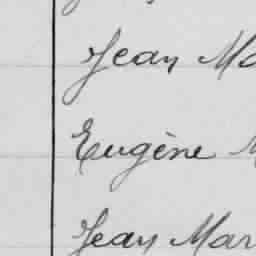 Jean Ma
Eugène M
Jean Mar